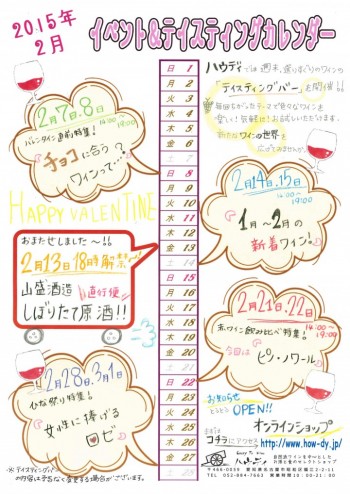 2015年
2月
イベント&テイスティングカレンダー
ハウディでは週末、選りすぐりのワインの
「テイスティングバー」を開催!!
毎回ちがったテーマで色々なワインを
楽しく!気軽に!お試しいただけます。
新たなワインの世界を
広げてみませんか。
日 1
月 2
火 3
水 4
木 5
金 6
土 7
日 8
月 9
火 10
水 11
木 12
金 13
土 14
日 15
月 16
火 17
水 18
木 19
金 20
土 21
日 22
月 23
火 24
水 25
木 26
金 27
土 28
2月7日.8日
14:00~19:00
バレンタイン直前特集!
『チョコに合う
ワインって…?』
HAPPY VALENTINE
2月14日.15日
14:00~19:00
『1月~2月の
新着ワイン!』
おまたせしました~!!
2月13日18時解禁
山盛酒造 直行便
しぼりたて原酒!!
2月21日.22日
14:00~19:00
赤ワイン飲み比べ特集!
今回は
『ピノ・ノワール』
2月28日.3月1日
ひな祭り特集!
『女性に捧げる
ロゼ』
お知らせ
OPEN!!
オンラインショップ
コチラにアクセス
http://www.how-dy.jp/
ハウディ
※テイスティングバーの
内容は予告なく変更する場合がございます。